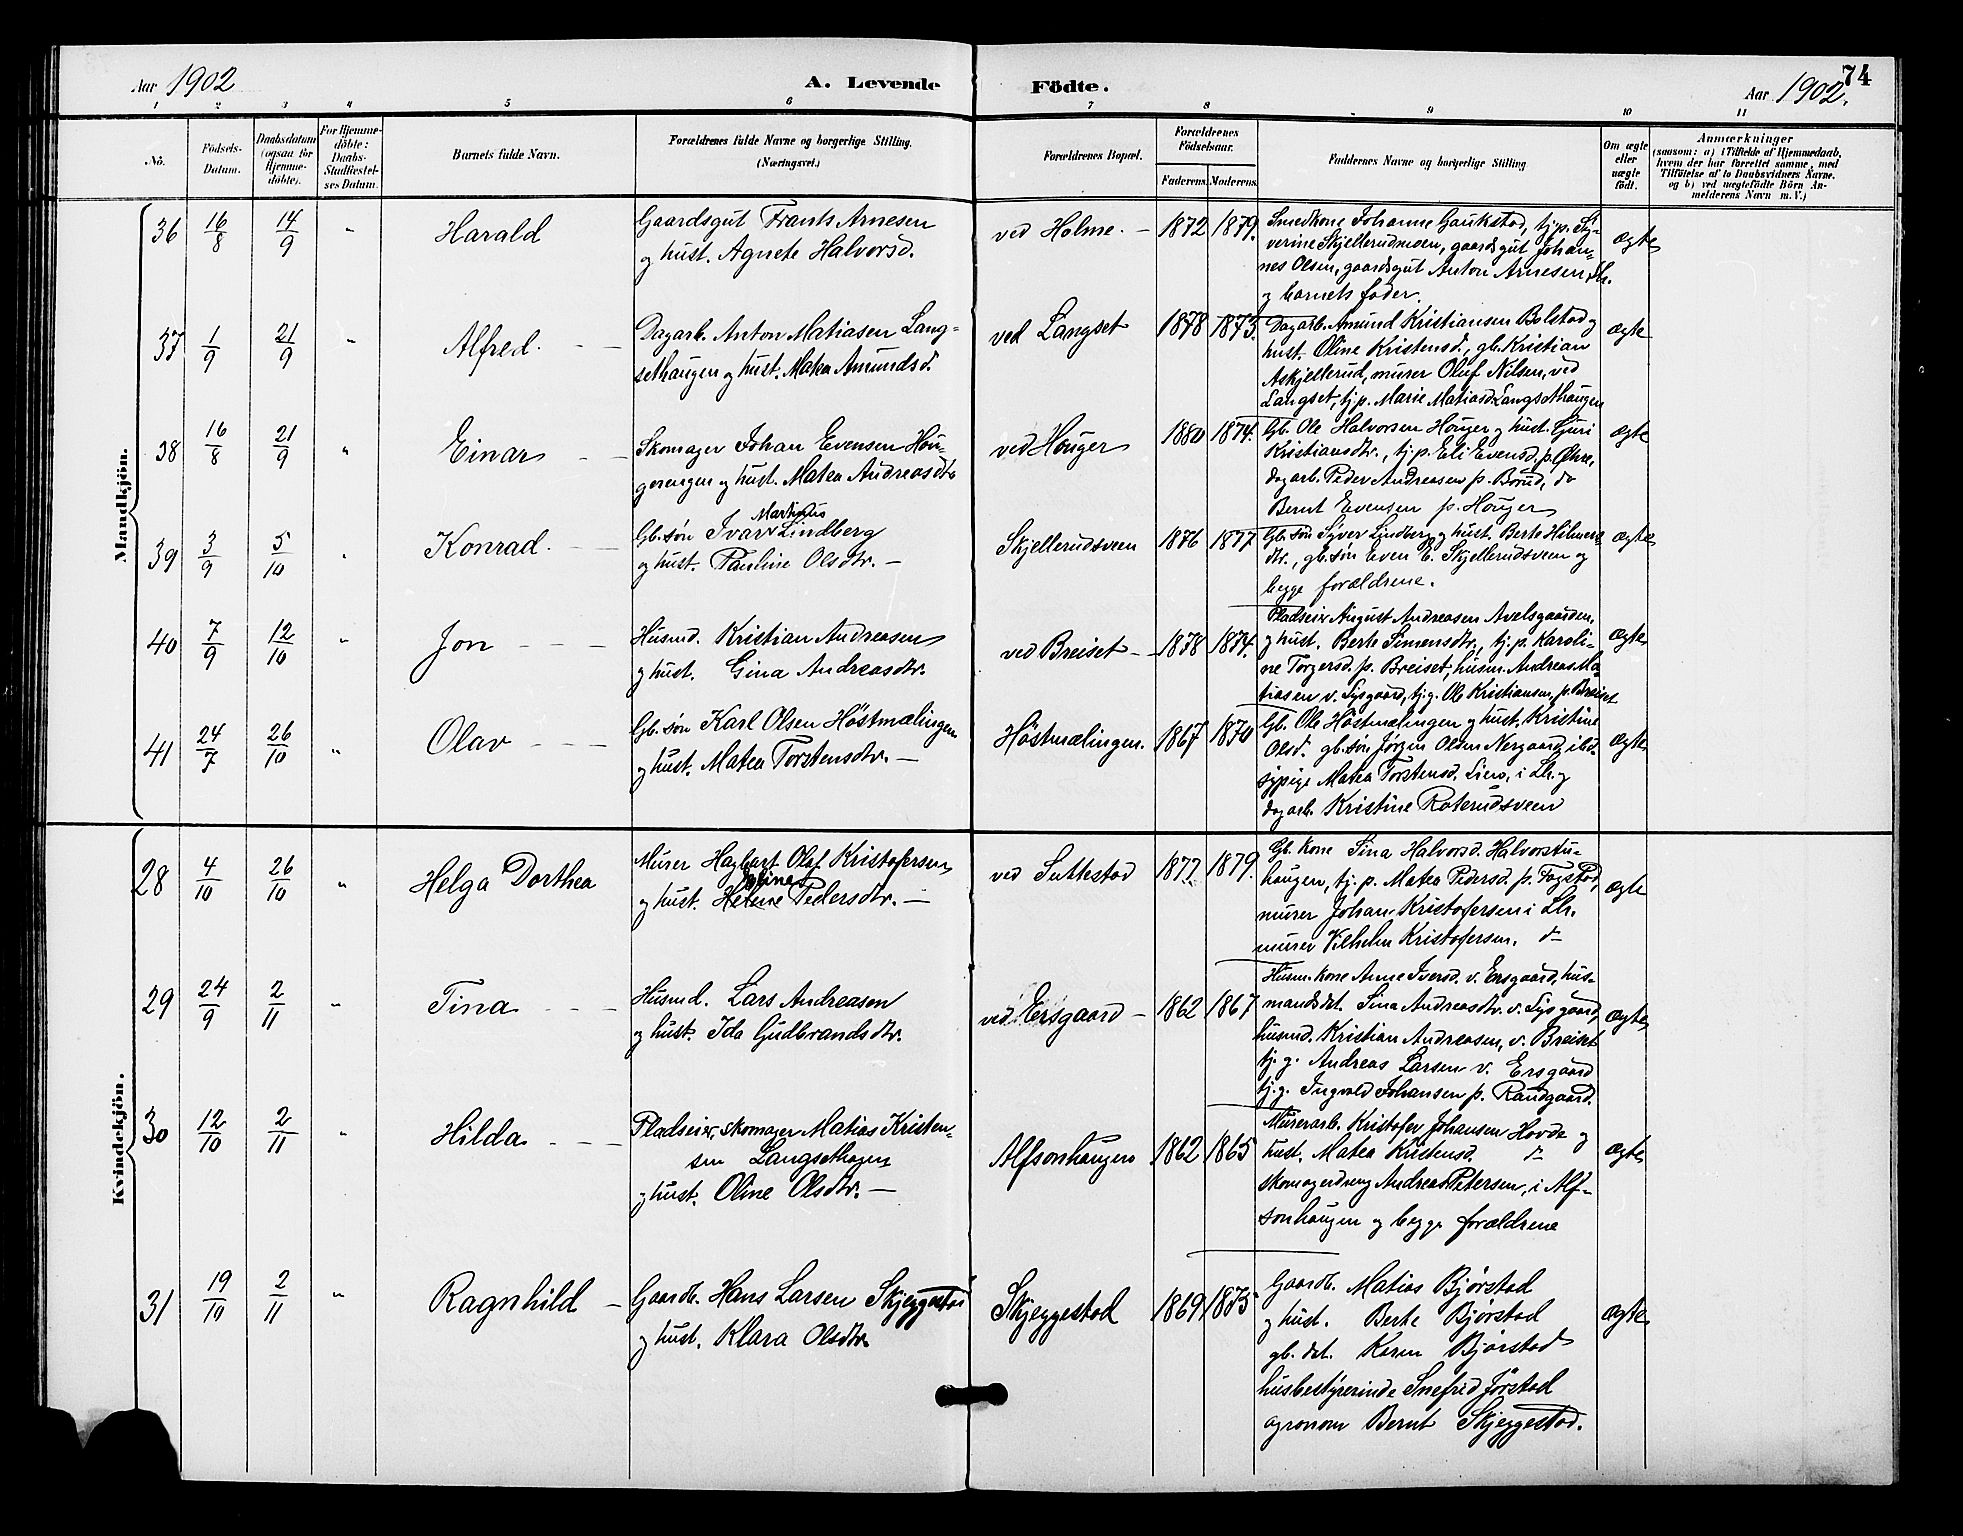 Aar 1902
A. Levende
Födte.
Aar 1902.
74
1 2 3 4 5 6 7 8 9 10 11
No.
Födsels-
Datum.
Daabsdatum
(ogsaa for
Hjemme-
döbte).
For Hjemme-
döbte:
Daabs-
Stadfæstel-
ses Datum.
Barnets fulde Navn.
Forældrenes fulde Navne og borgerlige Stilling.
(Næringsvei.)
Forældrenes Bopæl.
Forældrenes
Födselsaar.
Faderens. Moderens.
Faddernes Navne og borgerlige Stilling
Om ægte
eller
uægte
födt.
Anmærkninger
(saasom: a) i Tilfælde af Hjemmedaab,
hvem der har forrettet samme, med
Tilföielse af to Daabsvidners Navne.
og b) ved uægtefödte Börn An-
melderens Navn m. V.)
Mandkjön.
36 16/8 14/9 " Harald
Gaardsgut Frants Arnesen
og hust. Agnete Halvorsd.
ved Holme. – 1872 1879.
Smedkone Johanne Gaukstad, tj.p. Sy-
verine Skjellerudmoen, gaardsgut Johan-
nes Olsen, gaardsgut Anton Arnesen, Lh.
og barnets fader.
ægte
37 1/9 21/9 " Alfred.
Dagarb. Anton Matiasen Lang-
sethaugen og hust. Matea Amundsd.
ved Langset 1878 1873.
Dagarb. Amund Kristiansen Bolstad og
hust. Oline Kristensd., gb. Kristian
Askjellerud, murer Oluf Nilsen, ved
Langset, tj.p. Marie Matiasd. Langsethaugen
ægte
38 16/8 21/9 " Einar
Skomager Johan Evensen Hou-
gerengen og hust. Matea Andreasdtr.
ved Houger 1880 1874.
Gb. Ole Halvorsen Houger og hust. Guri
Kristiansdtr., tj.p. Eli Evensd. p. Øhre,
dagarb. Peder Andreasen p. Borud, do
Bernt Evensen p. Houger
ægte
39 3/9 5/10 " Konrad.
Gb. søn Ivar Martinius Lindberg
og hust. Pauline Olsdtr. –
Skjellerudsveen 1876 1877
Gb. søn Syver Lindberg og hust. Berte Hilmers-
dtr., gb. søn Even E. Skjellerudsveen og
begge forældrene.
ægte
40 7/9 12/10 " Jon
Husmd. Kristian Andreasen
og hust. Gina Andreasdtr.
ved Breiset – 1878 1874.
Pladseier August Andreasen Avelsgaarden,
og hust. Berte Simensdtr., tj.p. Karoli-
ne Torgersd. p. Breiset, husm. Andreas Ma-
tiasen v. Sysgaard, tj.g. Ole Kristiansen p. Breiset
ægte
41 24/7 26/10 " Olav
Gb. søn Karl Olsen Høstmælingen
og hust. Matea Torstensdtr. –
Høstmælingen. 1867 1870
Gb. Ole Høstmælingen og hust. Kristine
Olsd. gb. søn Jørgen Olsen Nergaard, ibid.
sypige Matea Torstensd. i Lh. og
dagarb. Kristine Roterudsveen
ægte
Kvindekjön.
28 4/10 26/10 " Helga Dorthea
Murer Hagbart Olaf Kristofersen
og hust. Helene Eline Pedersdtr. –
ved Suttestad 1877. 1879.
Gb. kone Sina Halvorsd. Halvorstu-
haugen, tj.p. Matea Pedersd. p. Fogstad,
murer Johan Kristofersen i Lh.
murer Vilhelm Kristofersen. do
ægte
29 24/9 2/11 " Tina
Husmd. Lars Andreasen
og hust. Ida Gudbrandsdtr.
ved Ersgaard – 1862 1867
Husm. kone Anne Iversd. v. Ersgaard, hus-
mandsdat. Sina Andreasdtr. v. Sysgaard,
husmd. Kristian Andreasen, v. Breiset
tj.g. Andreas Larsen v. Ersgaard
tj.g. Ingvald Johansen p. Randgaard.
ægte
30 12/10 2/11 " Hilda
Pladseier, skomager Matias Kristen-
sen Langsethagen
og hust. Oline Olsdtr. –
Alfsonhaugen 1862 1865
Murerarb. Kristofer Johansen Hovde og
hust. Matea Kristensd. do
skomagerdreng Andreas Petersen, i Alf-
sonhaugen og begge forældrene
ægte
31 19/10 2/11 " Ragnhild –
Gaardb. Hans Larsen Skjeggestad
og hust. Klara Olsdtr.
Skjeggestad 1869 1875
Gaardb. Matias Bjørstad
og hust. Berte Bjørstad
gb. dat. Karen Bjørstad
husbestyrerinde Snefrid Jørstad
agronom Bernt Skjeggestad.
ægte